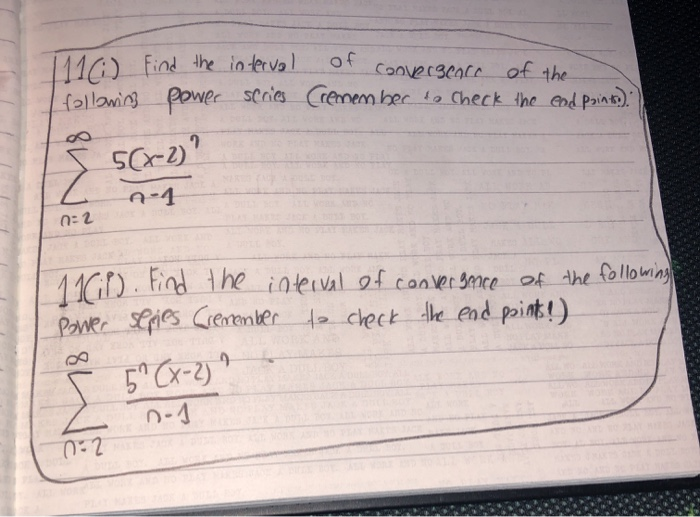 11(i) Find the interval of convergence of the
following power series (remember to check the end points).
∞
∑ 5(x-2)^n / n-1
n=2
11(ii). Find the interval of convergence of the following
Power series (remember to check the end point!)
∞
∑ 5^n (x-2)^n / n-1
n=2